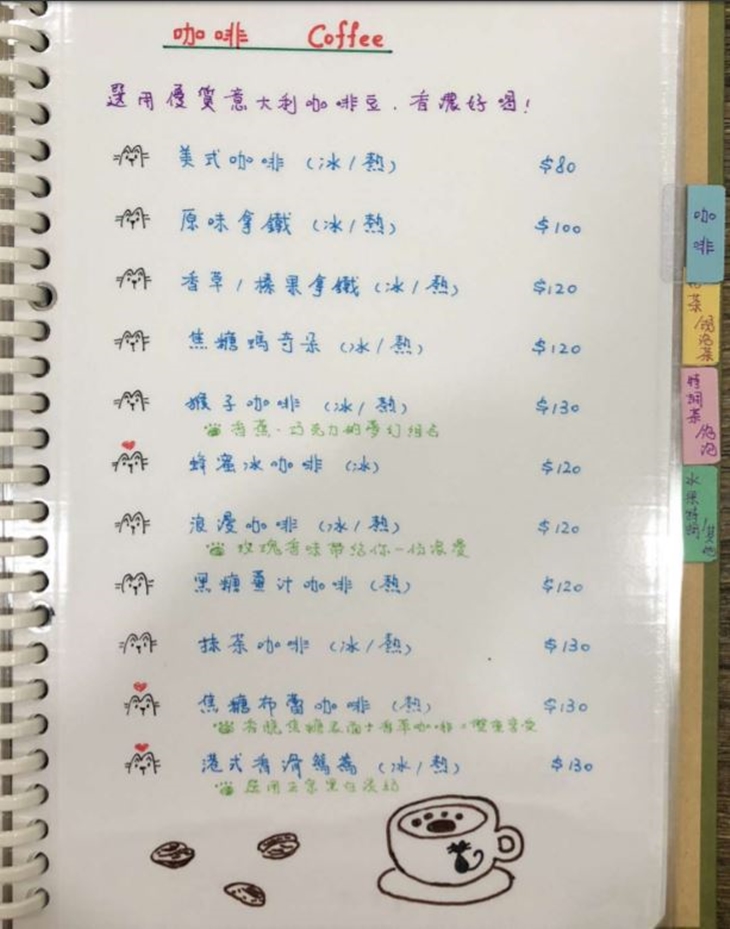 咖啡 Coffee
選用優質義大利咖啡豆，香濃好喝！
美式咖啡（冰/熱） $80
原味拿鐵（冰/熱） $100
香草/榛果拿鐵（冰/熱） $120
焦糖瑪奇朵（冰/熱） $120
猴子咖啡（冰/熱） $130
香蕉、巧克力的夢幻組合
蜂蜜冰咖啡（冰） $120
浪漫咖啡（冰/熱） $120
玫瑰香味帶給你一份浪漫
黑糖薑汁咖啡（熱） $120
抹茶咖啡（冰/熱） $130
焦糖布蕾咖啡（熱） $130
香脆焦糖表面+香草咖啡，雙重享受
港式香滑鴛鴦（冰/熱） $130
選用正宗黑白淡奶
咖啡
特調茶/飽泡
水果特調/其他